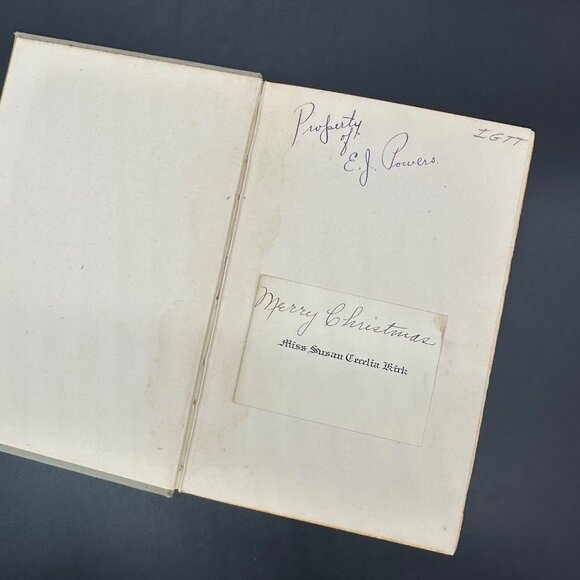 Property
of
E.J. Powers.
IGTT
Merry Christmas
Miss Susan Cecelia Kirk